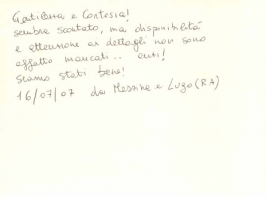 Gentilezza e Cortesia!
sembra scontato, ma disponibilità
e attenzione ai dettagli non sono
affatto mancati.. anzi!
Siamo stati bene!
16/07/07 da Messina e Lugo (RA)